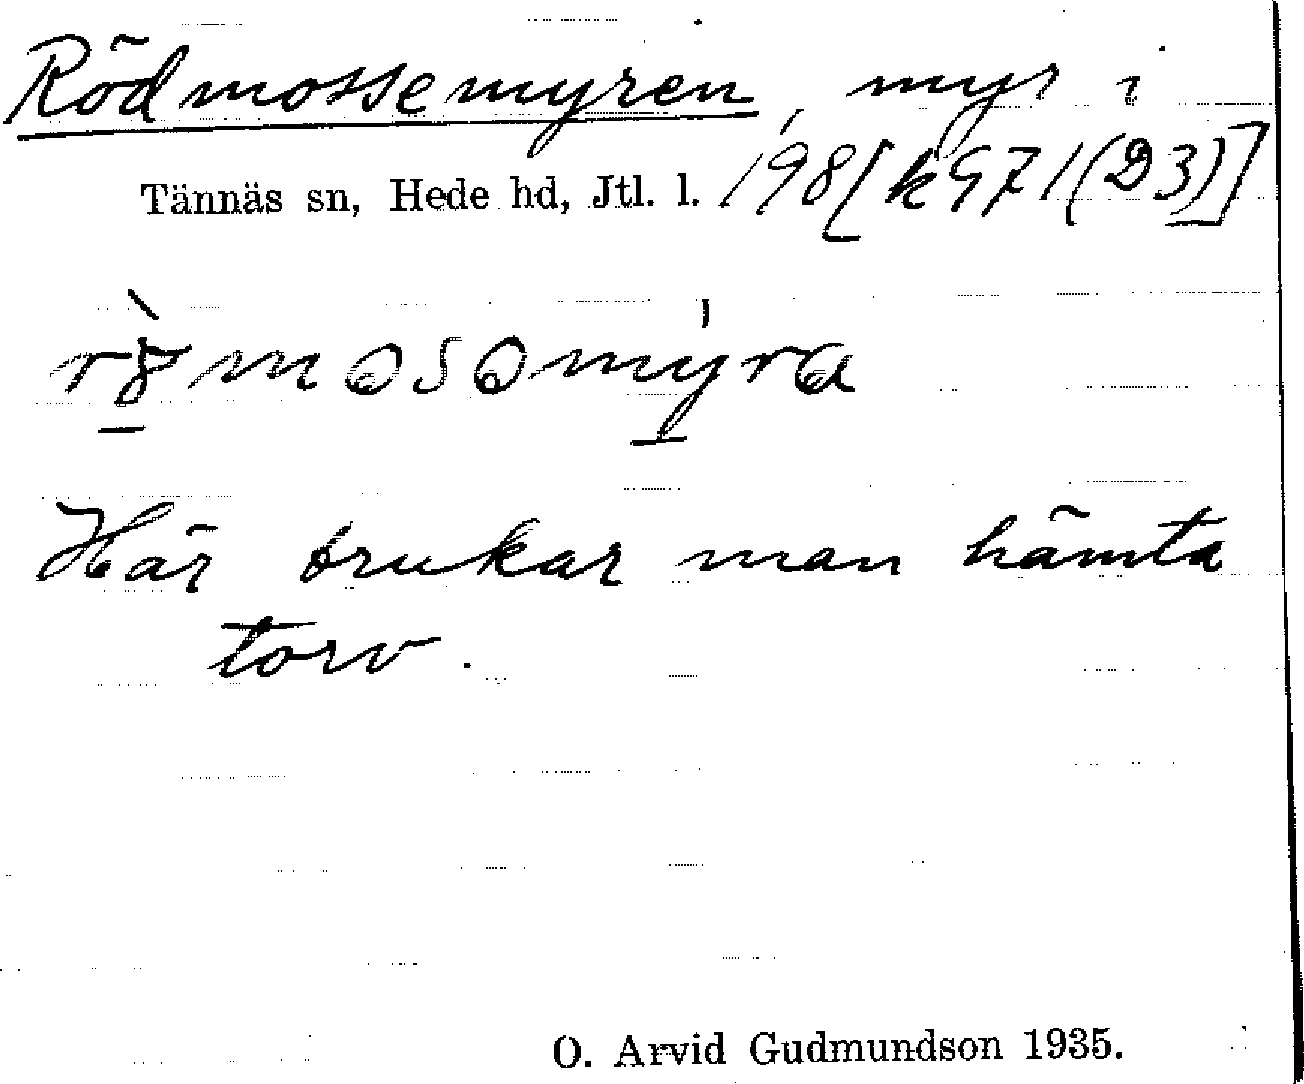 Rödmossemyren, myr i
Tännäs sn, Hede hd, Jtl. l. 198[k971(D3)]
Här brukar man hämta
torv.
O. Arvid Gudmundson 1935.